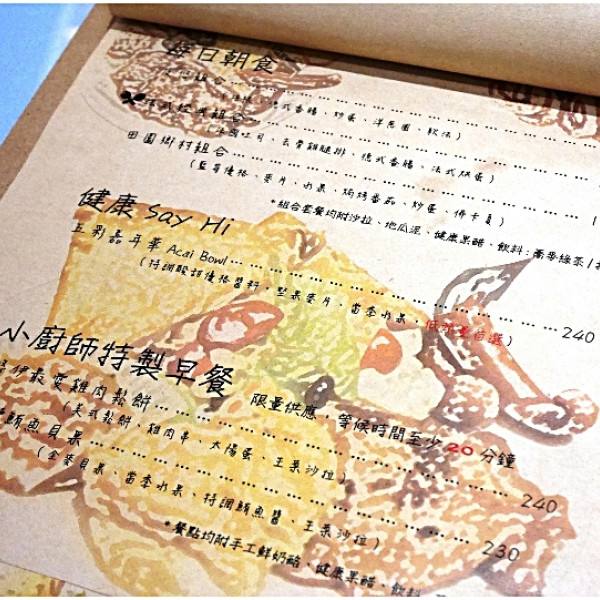 每日朝食
組合
式香腸、炒蛋、洋蔥圈、軟法
式經典組合
(法國吐司、去骨雞腿排、德式香腸、法式烘蛋)
田園鄉村組合
(藍莓優格、麥片、水果、焗烤番茄、炒蛋、佛卡夏)
*組合套餐均附沙拉、地瓜泥、健康果醋、飲料:蕎麥綠茶/
健康 Say Hi
五彩嘉年華 Acai Bowl 240
(特調酸甜優格醬料、堅果麥片、當季水果、自選)
小廚師特製早餐
限量供應,等候時間至少 20 分鐘
伊最愛雞肉鬆餅 240
(美式鬆餅、雞肉串、太陽蛋、生菜沙拉)
鮪魚貝果 230
(全麥貝果、當季水果、特調鮪魚醬、生菜沙拉)
*餐點均附手工鮮奶酪、健康果醋、飲料